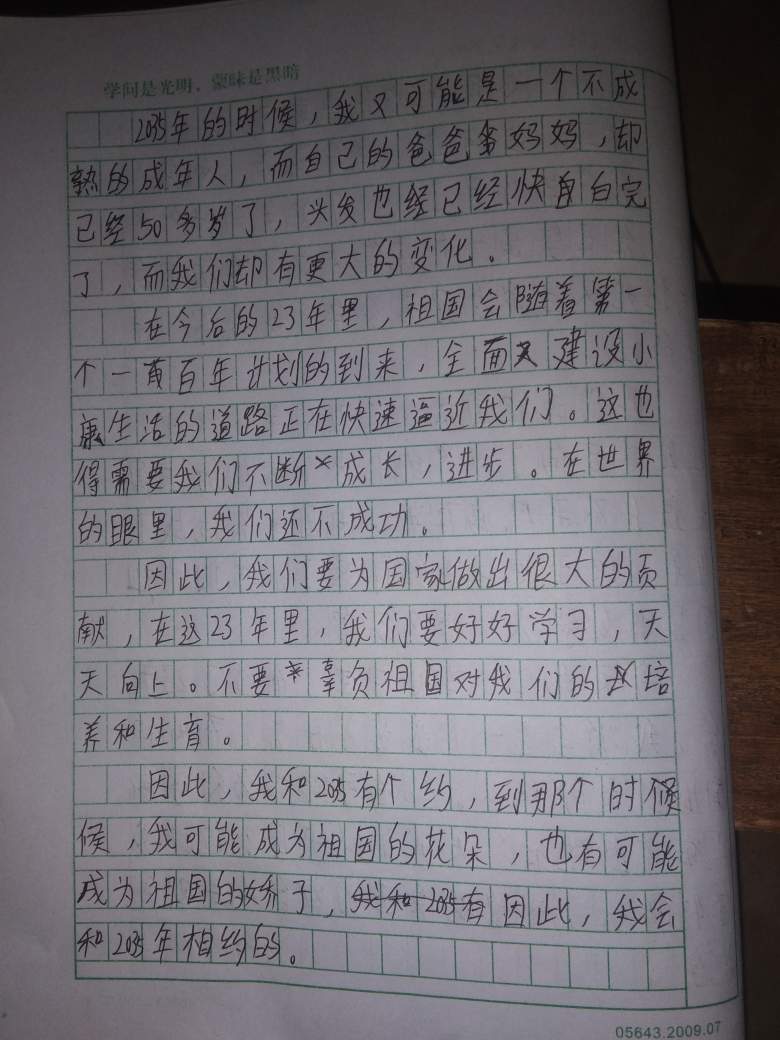 学问是光明，蒙昧是黑暗
2035年的时候，我又可能是一个不成
熟的成年人，而自己的爸爸妈妈，却
已经50多岁了，头发也经已经快白完
了，而我们却有更大的变化。
在今后的23年里，祖国会随着第一
个一百年计划的到来，全面建设小
康生活的道路正在快速逼近我们。这也
得需要我们不断成长，进步。在世界
的眼里，我们还不成功。
因此，我们要为国家做出很大的贡
献，在这23年里，我们要好好学习，天
天向上。不要辜负祖国对我们的培
养和生育。
因此，我和2035有个约，到那个时候
候，我可能成为祖国的花朵，也有可能
成为祖国的娇子，因此，我会
和2035年相约的。
05643.2009.07